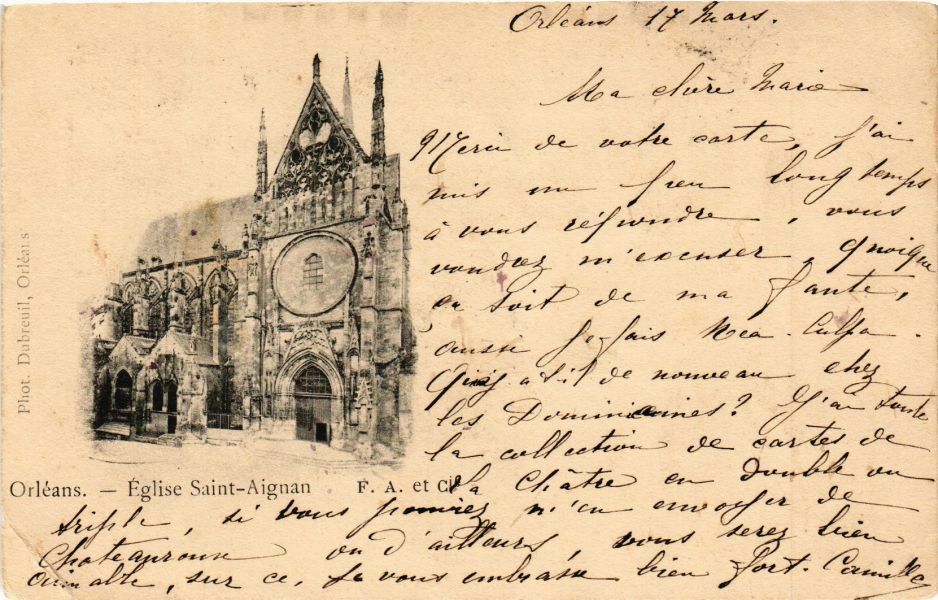 Orléans 17 Mars.
Ma chère Marie
Merci de votre carte, j'ai
mis un peu longtemps
à vous répondre, vous
voudrez m'excuser, quoique
ce soit de ma faute,
aussi je fais Mea-Culpa.
Qu'y a-t-il de nouveau chez
les Dominicaines? J'ai toute
la collection de cartes de
la Châtre en double ou
triple, si vous pouviez m'en envoyer de
Chateauroux ou d'ailleurs, vous serez bien
aimable, sur ce, je vous embrasse bien fort. Camille
Phot. Dubreuil, Orléans
Orléans. — Église Saint-Aignan F. A. et Cie